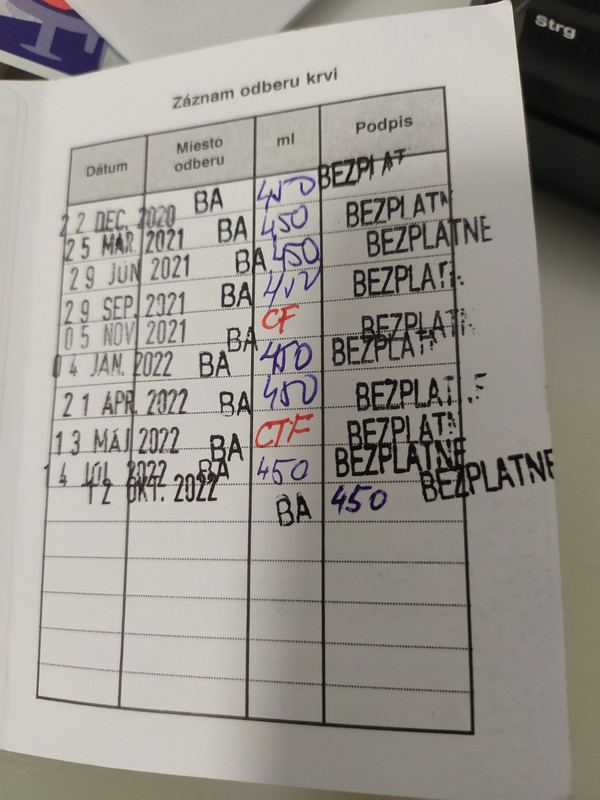 Strg
Záznam odberu krvi
Dátum Miesto odberu ml Podpis
22 DEC. 2020 BA 450 BEZPLAT
25 MAR. 2021 BA 450 BEZPLATN
29 JÚN 2021 BA 450 BEZPLATNE
29 SEP. 2021 BA 450 BEZPLATN
05 NOV. 2021 BA CF BEZPLATN
04 JAN. 2022 BA 450 BEZPLATN
21 APR. 2022 BA 450 BEZPLATNE
13 MÁJ 2022 BA CTF BEZPLATN
14 JÚL 2022 BA 450 BEZPLATNE
12 OKT. 2022 BA 450 BEZPLATNE